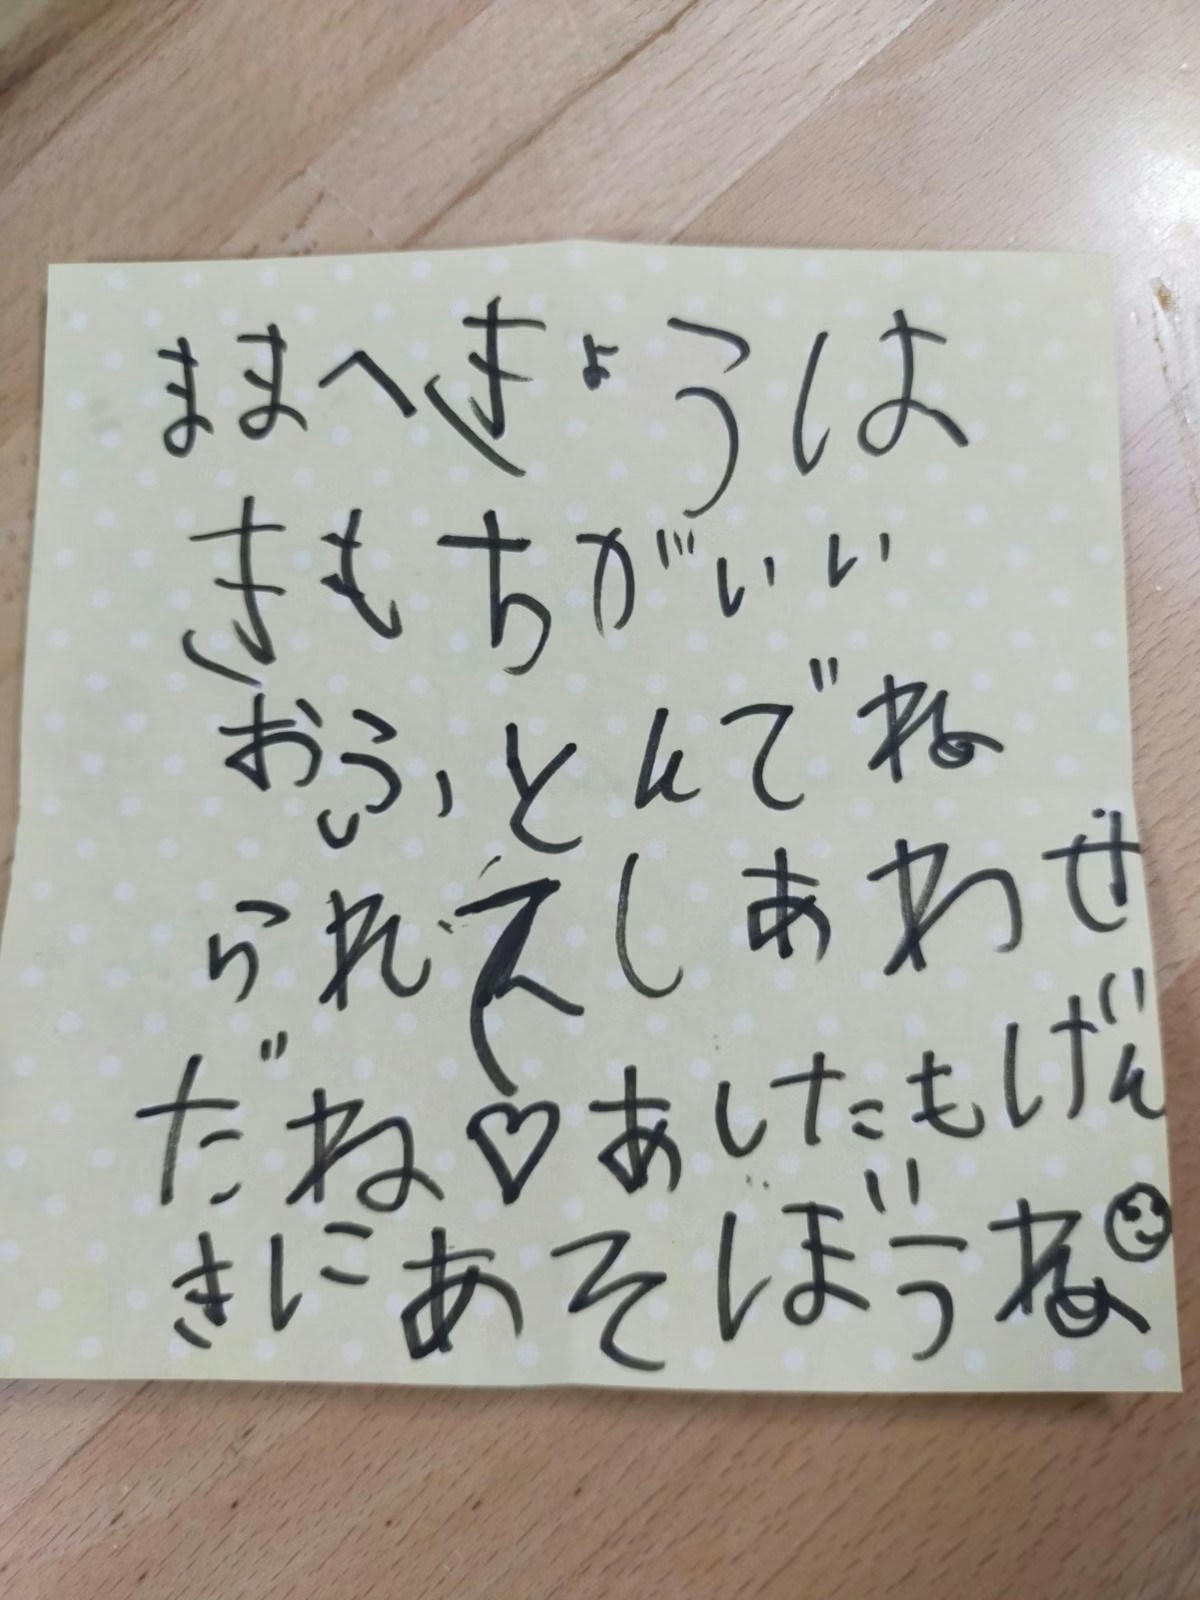 ままへきょうは
きもちがいい
おふとんでね
られてしあわせ
だね♡あしたもげん
きにあそぼうね